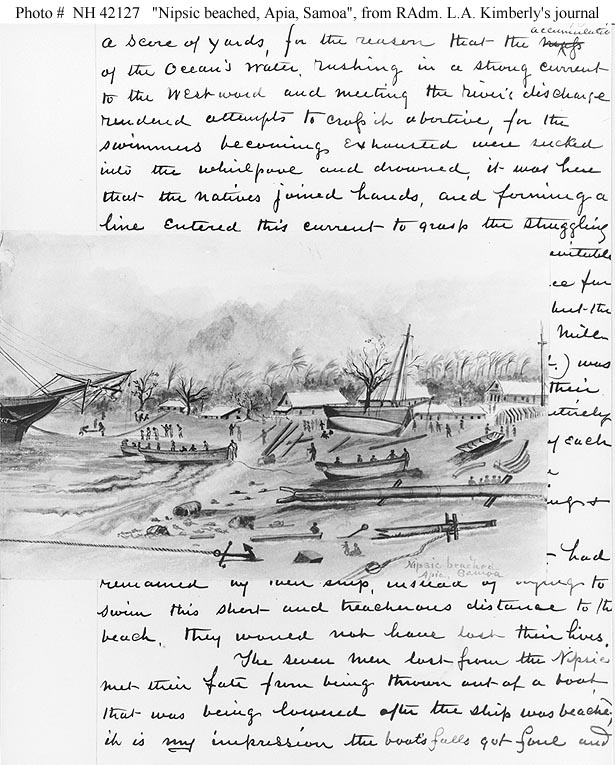 Photo # NH 42127 "Nipsic beached, Apia, Samoa", from RAdm. L.A. Kimberly's journal
accumulation
a score of yards, for the reason that the
of the Ocean's water, rushing in a strong current
to the Westward and meeting the river's discharge
rendered attempts to cross it abortive, for the
swimmers becoming exhausted were sucked
into the whirlpool and drowned, it was here
that the natives joined hands, and forming a
line entered this current to grasp the struggling
for
but the
was
their
each
had
Nipsic beached
Apia, Samoa
remained by their ship, instead of trying to
swim this short and treacherous distance to the
beach, they would not have lost their lives.
The seven men lost from the Nipsic
met their fate from being thrown out of a boat,
that was being lowered after the ship was beached,
it is my impression the boats falls got foul and